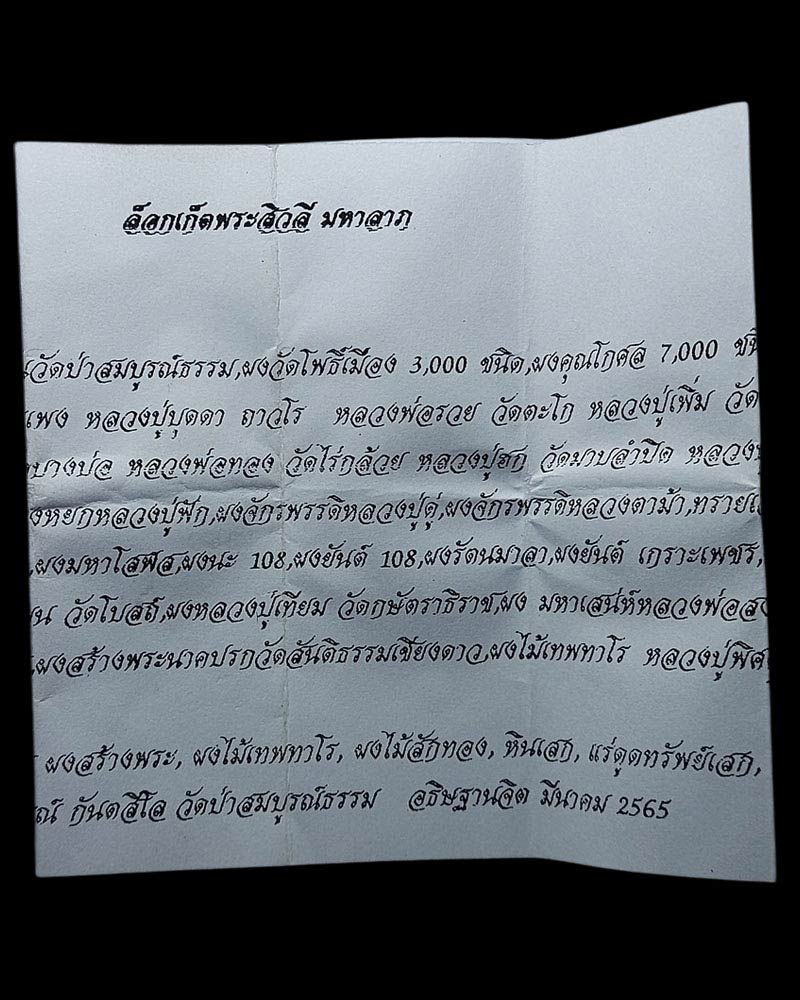 ล็อกเก็ตพระสิวลี มหาลาภ
วัดป่าสมบูรณ์ธรรม,ผงวัดโพธิ์เมือง 3,000 ชนิด,ผงคุณโกศล 7,000
เพง หลวงปู่บุดดา ถาวโร หลวงพ่อรวย วัดตะโก หลวงปู่เพิ่ม วัด
บางบ่อ หลวงพ่อทอง วัดไร่กล้วย หลวงปู่ฮก วัดมาบลำบิด
หยกหลวงปู่ฟัก,ผงจักรพรรดิหลวงปู่ดู่,ผงจักรพรรดิหลวงตาม้า,ทราย
,ผงมหาโสฬส,ผงนะ 108,ผงยันต์ 108,ผงรัตนมาลา,ผงยันต์ เกราะเพชร,
วัดโบสถ์,ผงหลวงปู่เทียม วัดกษัตราธิราช,ผง มหาเสน่ห์หลวงพ่อ
ผงสร้างพระนาคปรกวัดสันติธรรมเชียงดาว,ผงไม้เทพทาโร หลวงปู่
ผงสร้างพระ, ผงไม้เทพทาโร, ผงไม้สักทอง, หินเสก, แร่ดูดทรัพย์เสก,
กันตสีโล วัดป่าสมบูรณ์ธรรม อธิษฐานจิต มีนาคม 2565